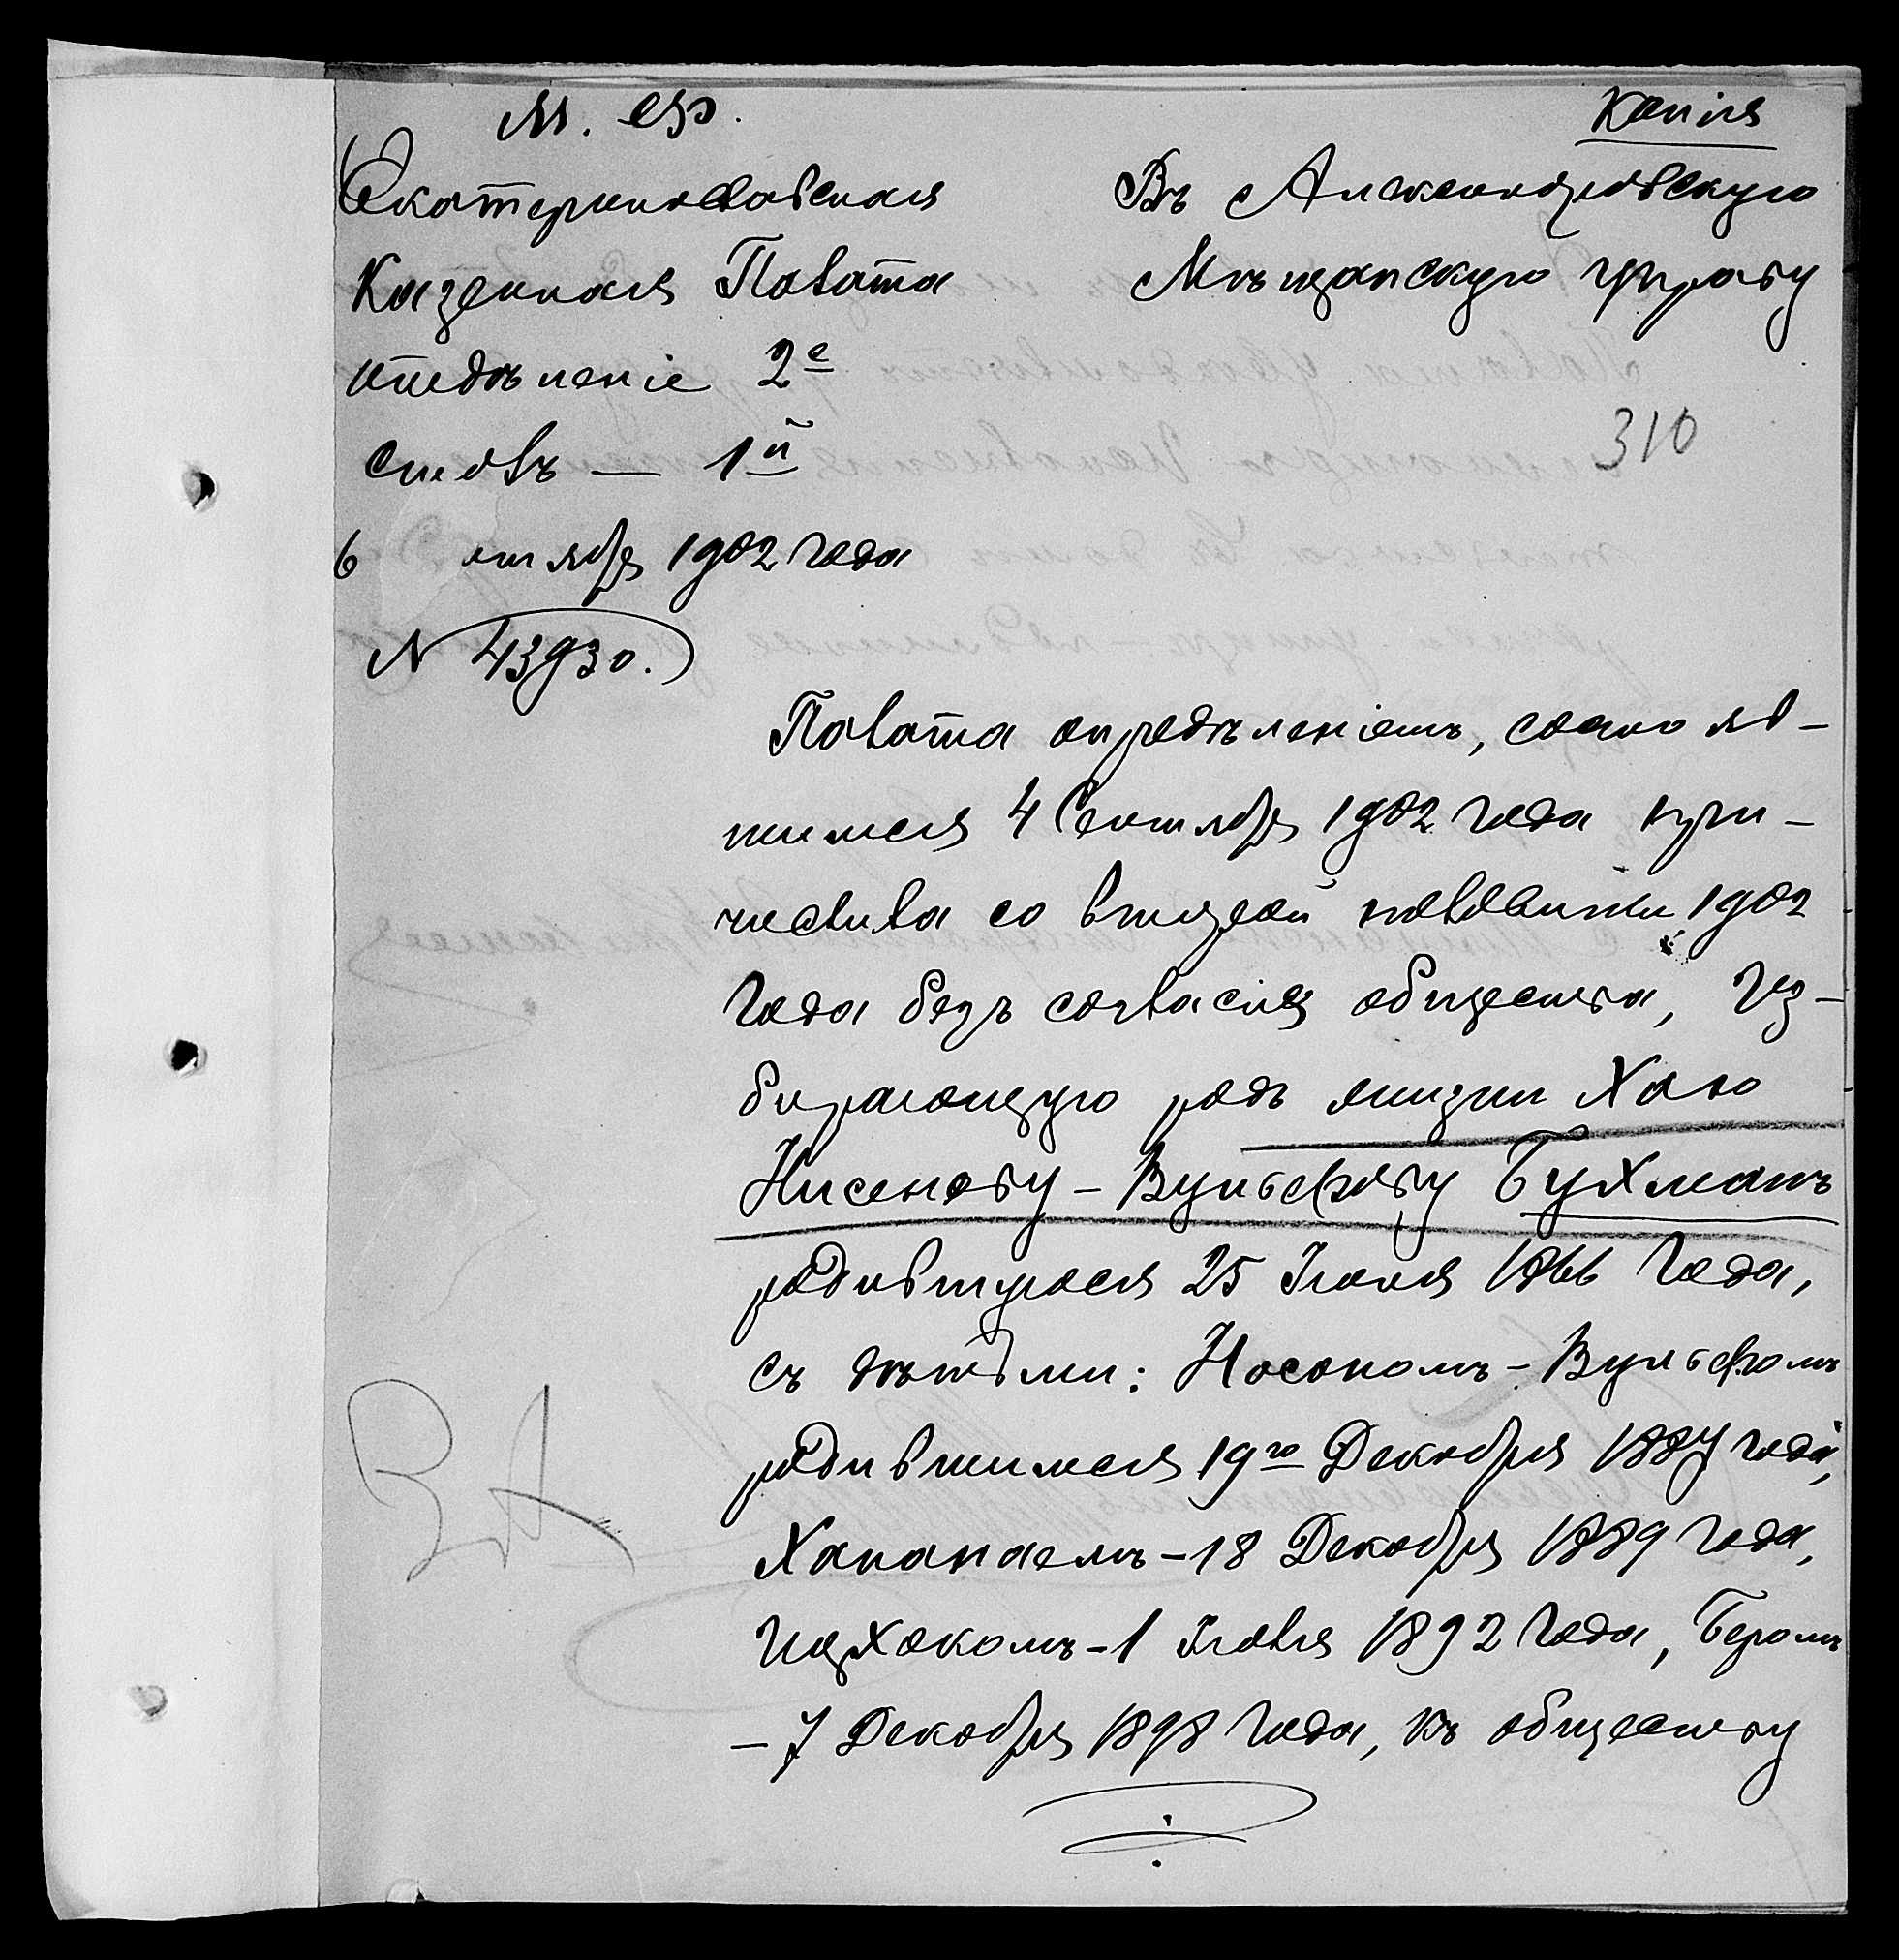 М. Ф.
Копія
Екатеринославская
Казенная Палата
отдѣленіе 2е
столъ — 1й
6 октября 1902 года
N 43930.
Въ Александровскую
Мѣщанскую Управу
310
Палата опредѣленіемъ, состояв-
шимся 4 Сентября 1902 года при-
числила со второй половины 1902
года безъ согласія общества, из-
бирающую родъ жизни Хаю
Нисенову-Вульфову Бухманъ
родившуюся 25 Іюня 1866 года,
съ дѣтьми: Носономъ-Вульфомъ
родившимся 19го Декабря 1887 года,
Хананаемъ-18 Декабря 1889 года,
Ицхокомъ-1 Іюля 1892 года, Беромъ
-7 Декабря 1898 года, къ обществу